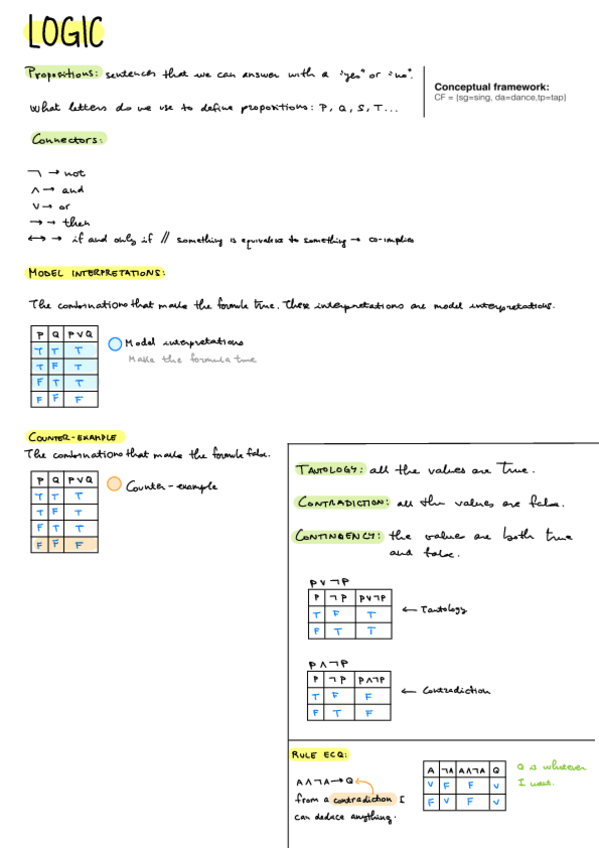 LOGIC
Propositions: sentences that we can answer with a "yes" or "no".
What letters do we use to define propositions: P, Q, S, T...
Conceptual framework:
CF = {sg=sing, da=dance,tp=tap}
Connectors:
¬ → not
∧ → and
∨ → or
→ → then
↔ → if and only if // something is equivalent to something → co-implies
MODEL INTERPRETATIONS:
The combinations that make the formula true. These interpretations are model interpretations.
P Q P∨Q
T T T
T F T
F T T
F F F
Model interpretations
Make the formula true
COUNTER-EXAMPLE
The combinations that make the formula false.
P Q P∨Q
T T T
T F T
F T T
F F F
Counter-example
TAUTOLOGY: all the values are True.
CONTRADICTION: all the values are false.
CONTINGENCY: the values are both true
and false.
P∨¬P
P ¬P P∨¬P
T F T
F T T
← Tautology
P∧¬P
P ¬P P∧¬P
T F F
F T F
← Contradiction
RULE ECQ:
A∧¬A→Q
from a contradiction I
can deduce anything.
A ¬A A∧¬A Q
V F F V
F V F V
Q is whatever
I want.